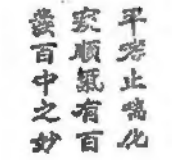 平咳止喘化
痰順氣有百
發百中之妙